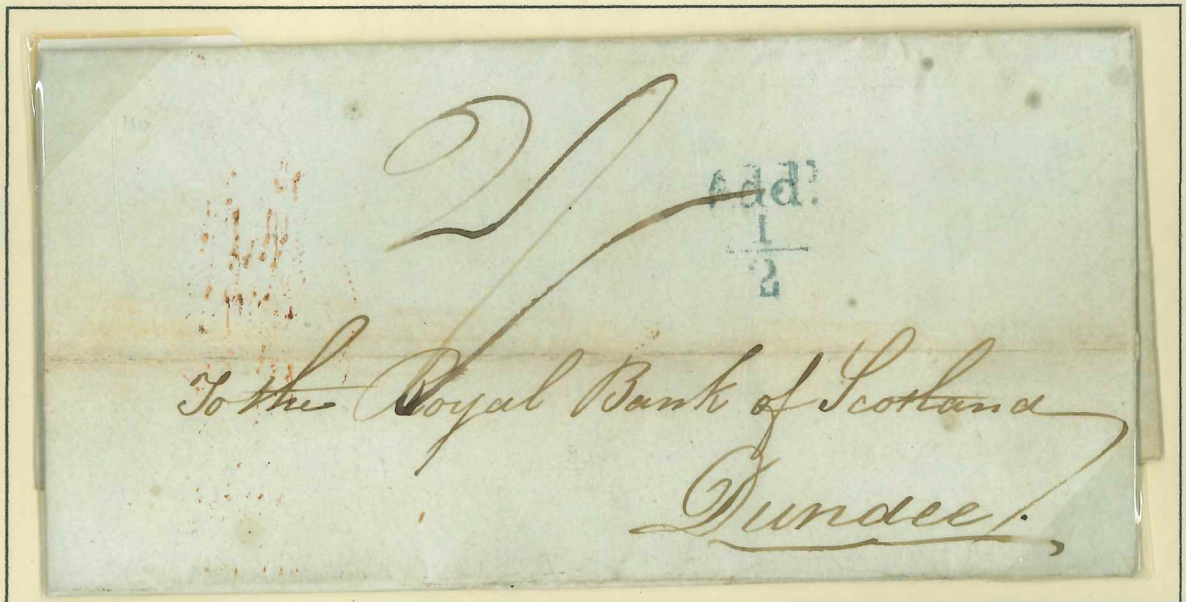 2/
Add!
1
2
To the Royal Bank of Scotland
Dundee.